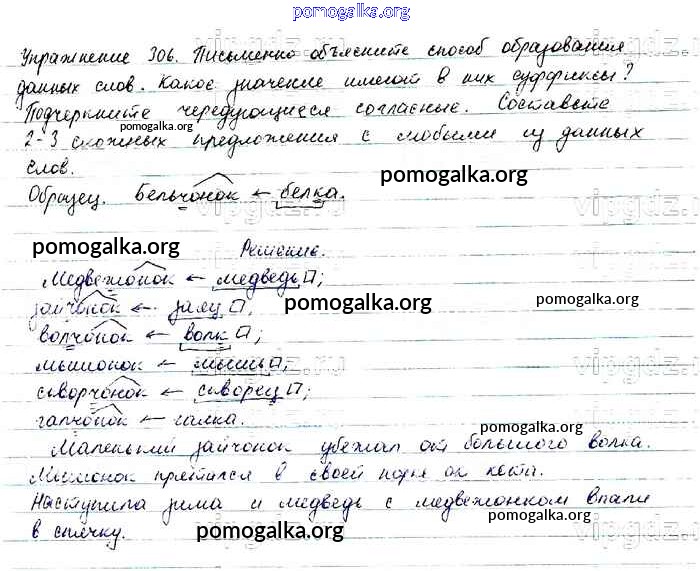 pomogalka.org
Упражнение 306. Письменно объясните способ образования
данных слов. Какое значение имеют в них суффиксы?
Подчеркните чередующиеся согласные. Составьте
pomogalka.org
2-3 сложных предложения с любыми из данных
слов.
pomogalka.org
Образец. Бельчонок ← белка.
vipgdz.ru
pomogalka.org
Решение.
Медвежонок ← медведь□;
зайчонок ← заяц□;
pomogalka.org
pomogalka.org
волчонок ← волк□;
мышонок ← мышь□;
vipgdz.ru
скворчонок ← скворец□;
pomogalka.org
галчонок ← галка.
Маленький зайчонок убежал от большого волка.
pomogalka.org
Мышонок прятался в своей норке от кота.
Наступила зима и медведь с медвежонком впали
pomogalka.org
в спячку.
pomogalka.org
vipgdz.ru